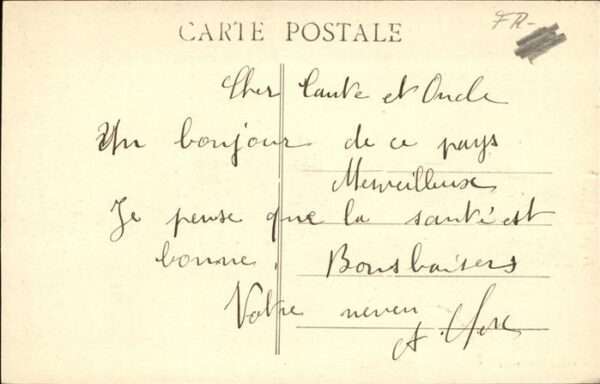 FR-
CARTE POSTALE
Cher Tante et Oncle
Un bonjour de ce pays
Merveilleux
Je pense que la santé est
bonne. Bons baisers
Votre neveu